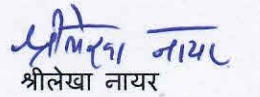 श्रीलेखा नायर
श्रीलेखा नायर